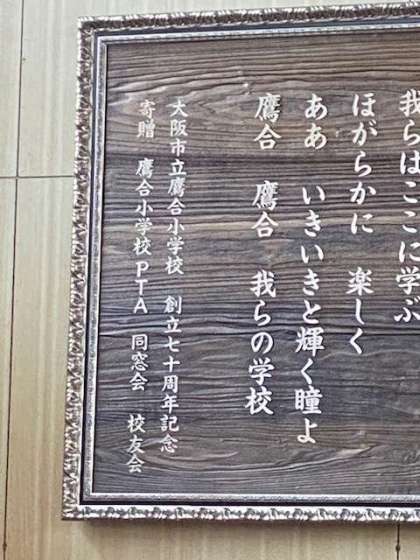 我らはここに学ぶ
ほがらかに 楽しく
ああ いきいきと輝く瞳よ
鷹合 鷹合 我らの学校
大阪市立鷹合小学校 創立七十周年記念
寄贈 鷹合小学校PTA 同窓会 校友会